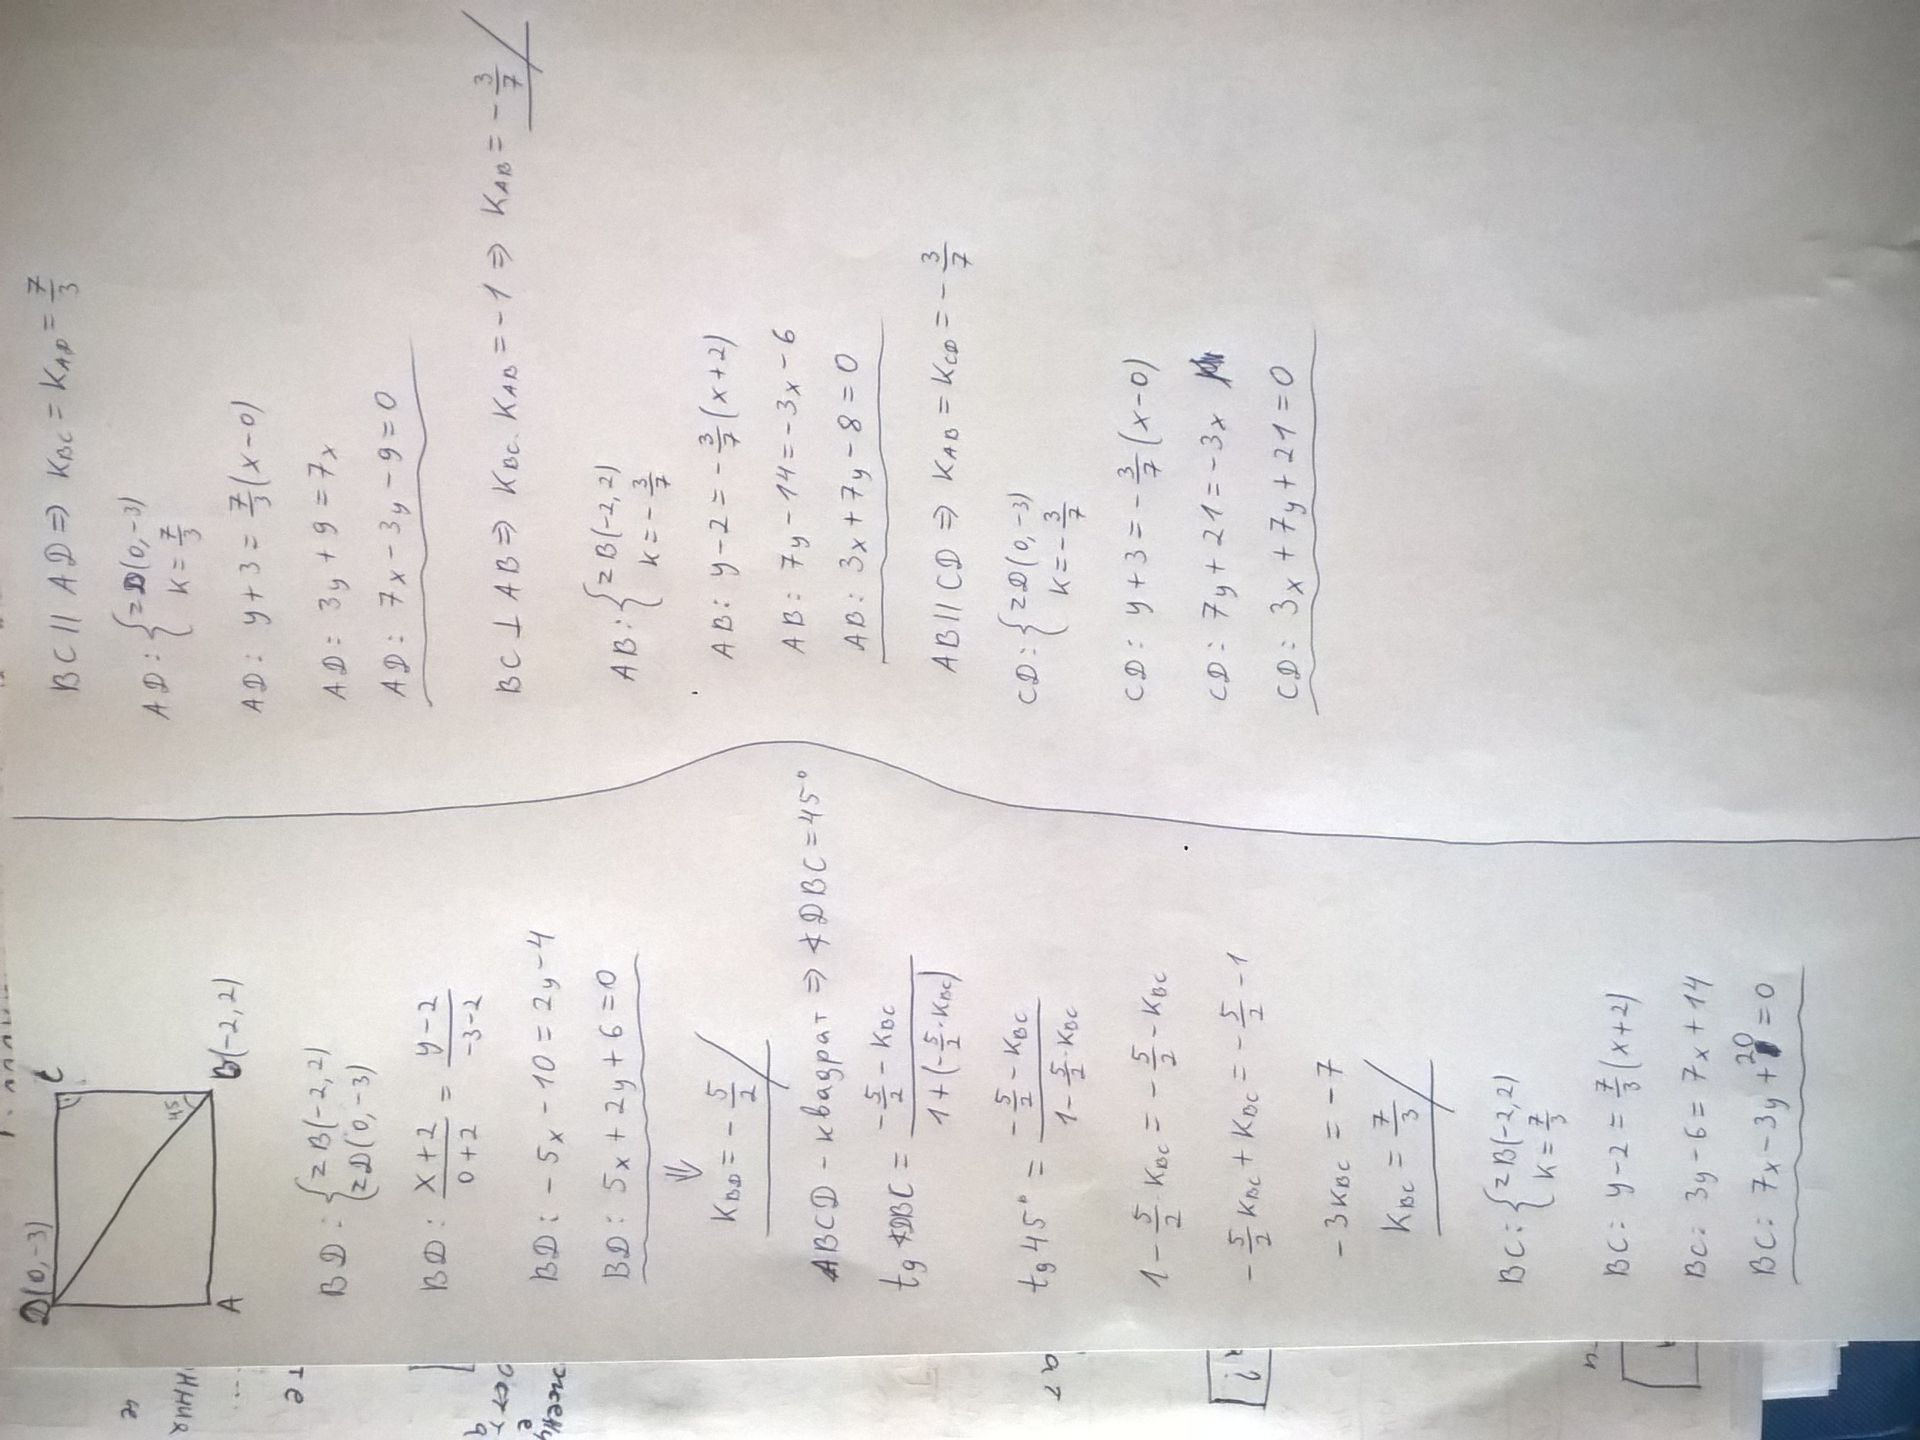 D(0,-3)
C
45
A
B(-2,2)
BD: { zB(-2,2)
zD(0,-3)
BD: \frac{x+2}{0+2} = \frac{y-2}{-3-2}
BD: -5x-10=2y-4
BD: 5x+2y+6=0
⇓
K_{BD} = -\frac{5}{2}
ABCD - квадрат ⇒ ∢DBC=45°
tg∢DBC = \frac{-\frac{5}{2}-K_{BC}}{1+(-\frac{5}{2}·K_{BC})}
tg45° = \frac{-\frac{5}{2}-K_{BC}}{1-\frac{5}{2}·K_{BC}}
1-\frac{5}{2}·K_{BC} = -\frac{5}{2}-K_{BC}
-\frac{5}{2}K_{BC}+K_{BC} = -\frac{5}{2}-1
-3K_{BC} = -7
K_{BC} = \frac{7}{3}
BC: { zB(-2,2)
K=\frac{7}{3}
BC: y-2=\frac{7}{3}(x+2)
BC: 3y-6=7x+14
BC: 7x-3y+20=0
BC || AD ⇒ K_{BC} = K_{AD} = \frac{7}{3}
AD: { zD(0,-3)
K=\frac{7}{3}
AD: y+3=\frac{7}{3}(x-0)
AD: 3y+9=7x
AD: 7x-3y-9=0
BC ⊥ AB ⇒ K_{BC}·K_{AB}=-1 ⇒ K_{AB}=-\frac{3}{7}
AB: { zB(-2,2)
K=-\frac{3}{7}
AB: y-2=-\frac{3}{7}(x+2)
AB: 7y-14=-3x-6
AB: 3x+7y-8=0
AB || CD ⇒ K_{AB} = K_{CD} = -\frac{3}{7}
CD: { zD(0,-3)
K=-\frac{3}{7}
CD: y+3=-\frac{3}{7}(x-0)
CD: 7y+21=-3x
CD: 3x+7y+21=0